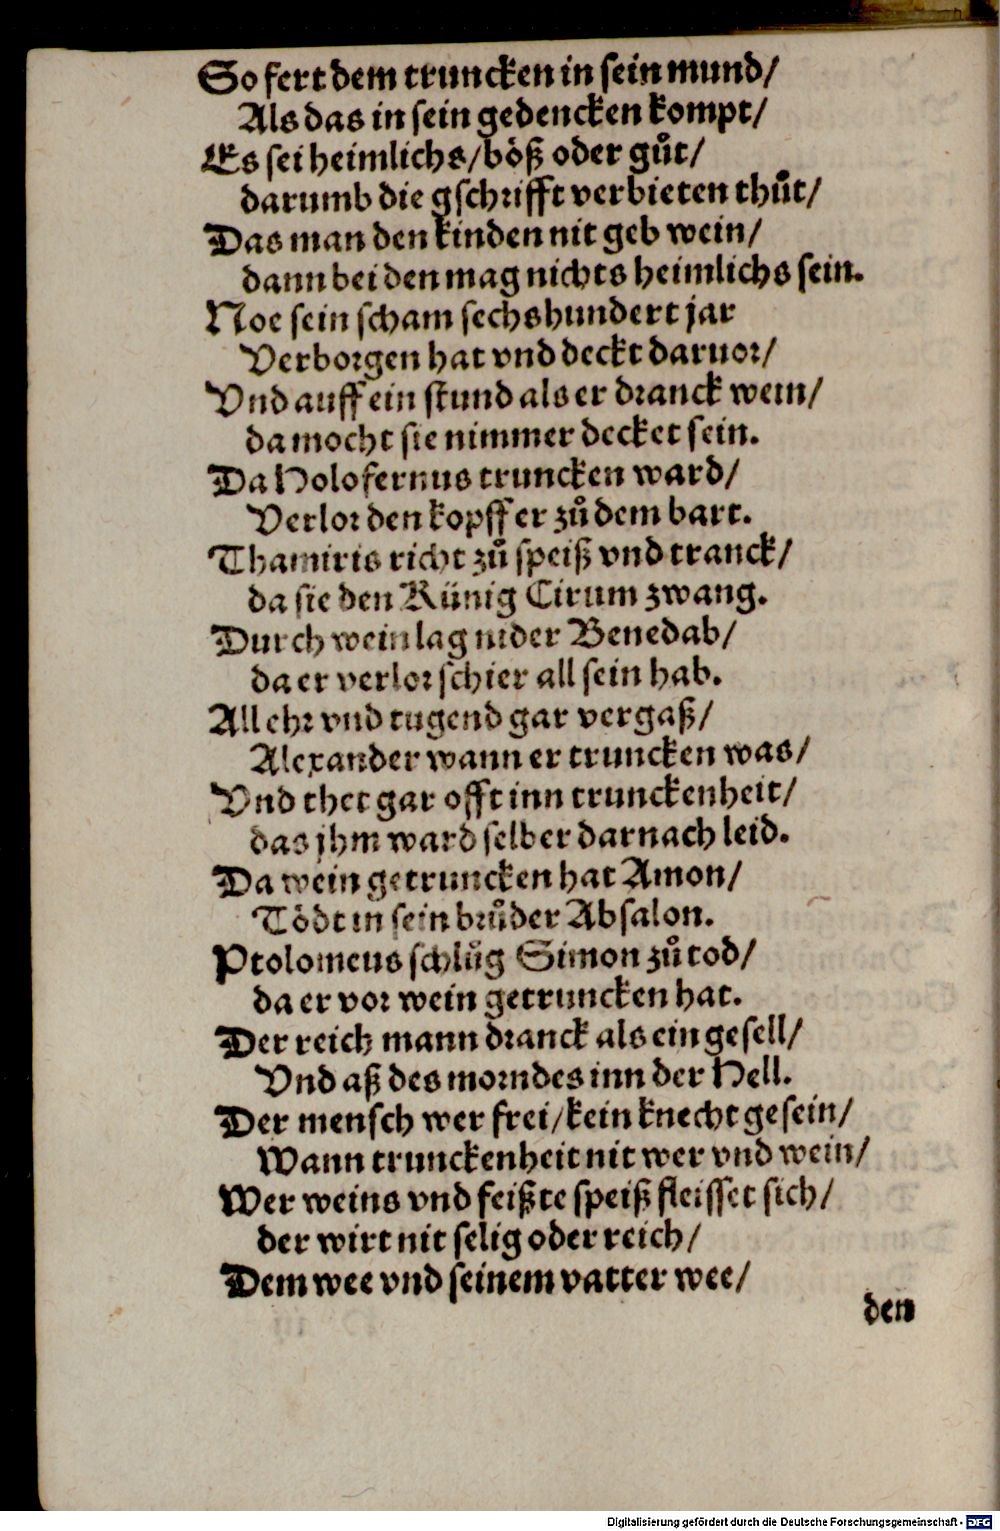 So fert dem truncken in sein mund/
Als das in sein gedencken kompt/
Es sei heimlichs/böß oder gůt/
darumb die gschrifft verbieten thůt/
Das man den kinden nit geb wein/
dann bei den mag nichts heimlichs sein.
Noe sein scham sechshundert jar
Verborgen hat vnd deckt daruor/
Vnd auff ein stund als er dranck wein/
da mocht sie nimmer decket sein.
Da Holofernus truncken ward/
Verlor den kopff er zů dem bart.
Thamiris richt zů speiß vnd tranck/
da sie den Künig Cirum zwang.
Durch wein lag nider Benedab/
da er verlor schier all sein hab.
All ehr vnd tugend gar vergaß/
Alexander wann er truncken was/
Vnd thet gar offt inn trunckenheit/
das jhm ward selber darnach leid.
Da wein getruncken hat Amon/
Tödt in sein brůder Absalon.
Ptolomeus schlůg Simon zů tod/
da er vor wein getruncken hat.
Der reich mann dranck als ein gesell/
Vnd aß des morndes inn der Hell.
Der mensch wer frei/kein knecht gesein/
Wann trunckenheit nit wer vnd wein/
Wer weins vnd feißte speiß fleisset sich/
der wirt nit selig oder reich/
Dem wee vnd seinem vatter wee/
den
Digitalisierung gefördert durch die Deutsche Forschungsgemeinschaft - DFG